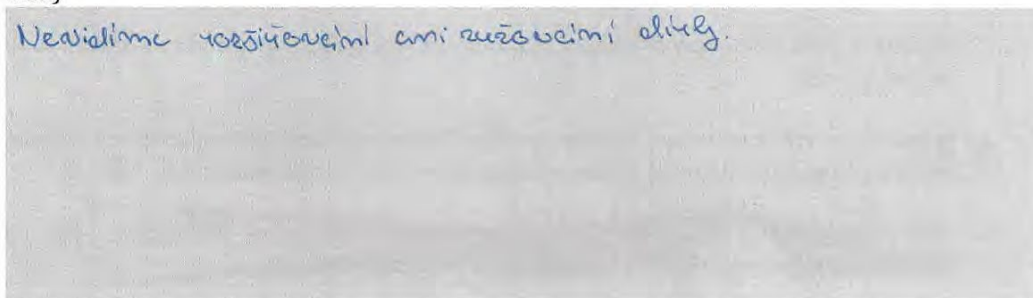 Nevidíme rozšiřování ani zužování díry.